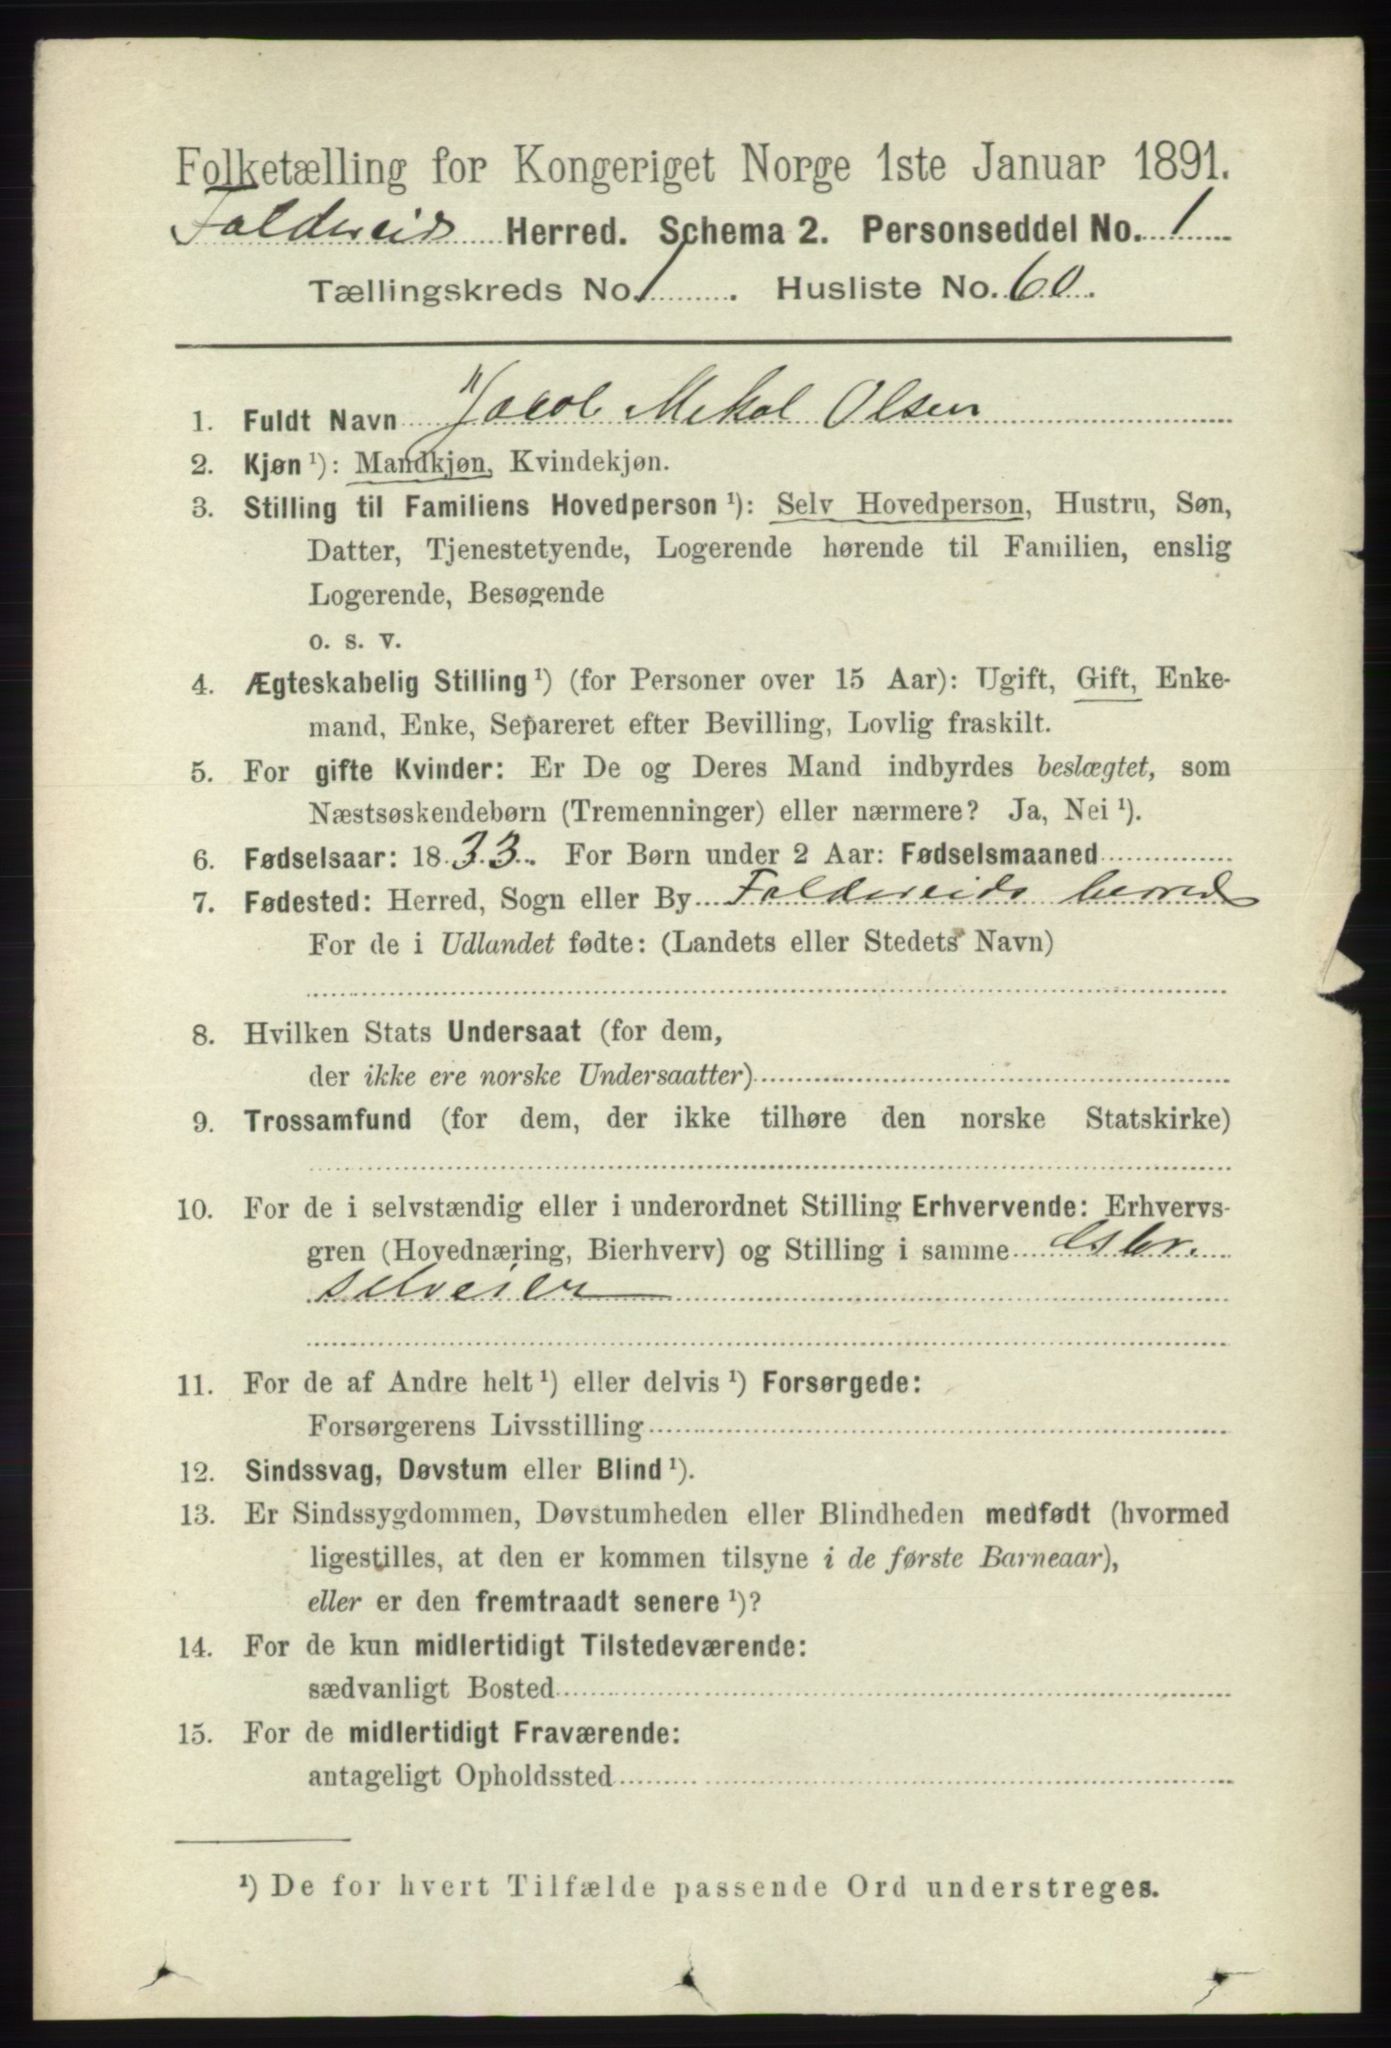 Folketælling for Kongeriget Norge 1ste Januar 1891.
Foldereid Herred. Schema 2. Personseddel No. 1
Tællingskreds No. 1. Husliste No. 60.
1. Fuldt Navn Jacob Mekal Olsen
2. Kjøn ¹): Mandkjøn, Kvindekjøn.
3. Stilling til Familiens Hovedperson ¹): Selv Hovedperson, Hustru, Søn,
Datter, Tjenestetyende, Logerende hørende til Familien, enslig
Logerende, Besøgende
o. s. v.
4. Ægteskabelig Stilling ¹) (for Personer over 15 Aar): Ugift, Gift, Enke-
mand, Enke, Separeret efter Bevilling, Lovlig fraskilt.
5. For gifte Kvinder: Er De og Deres Mand indbyrdes beslægtet, som
Næstsøskendebørn (Tremenninger) eller nærmere? Ja, Nei ¹).
6. Fødselsaar: 1833. For Børn under 2 Aar: Fødselsmaaned
7. Fødested: Herred, Sogn eller By Foldereids herred
For de i Udlandet fødte: (Landets eller Stedets Navn)
8. Hvilken Stats Undersaat (for dem,
der ikke ere norske Undersaatter)
9. Trossamfund (for dem, der ikke tilhøre den norske Statskirke)
10. For de i selvstændig eller i underordnet Stilling Erhvervende: Erhvervs-
gren (Hovednæring, Bierhverv) og Stilling i samme Gsbr.
selveier
11. For de af Andre helt ¹) eller delvis ¹) Forsørgede:
Forsørgerens Livsstilling
12. Sindssvag, Døvstum eller Blind ¹).
13. Er Sindssygdommen, Døvstumheden eller Blindheden medfødt (hvormed
ligestilles, at den er kommen tilsyne i de første Barneaar),
eller er den fremtraadt senere ¹)?
14. For de kun midlertidigt Tilstedeværende:
sædvanligt Bosted
15. For de midlertidigt Fraværende:
antageligt Opholdssted
¹) De for hvert Tilfælde passende Ord understreges.